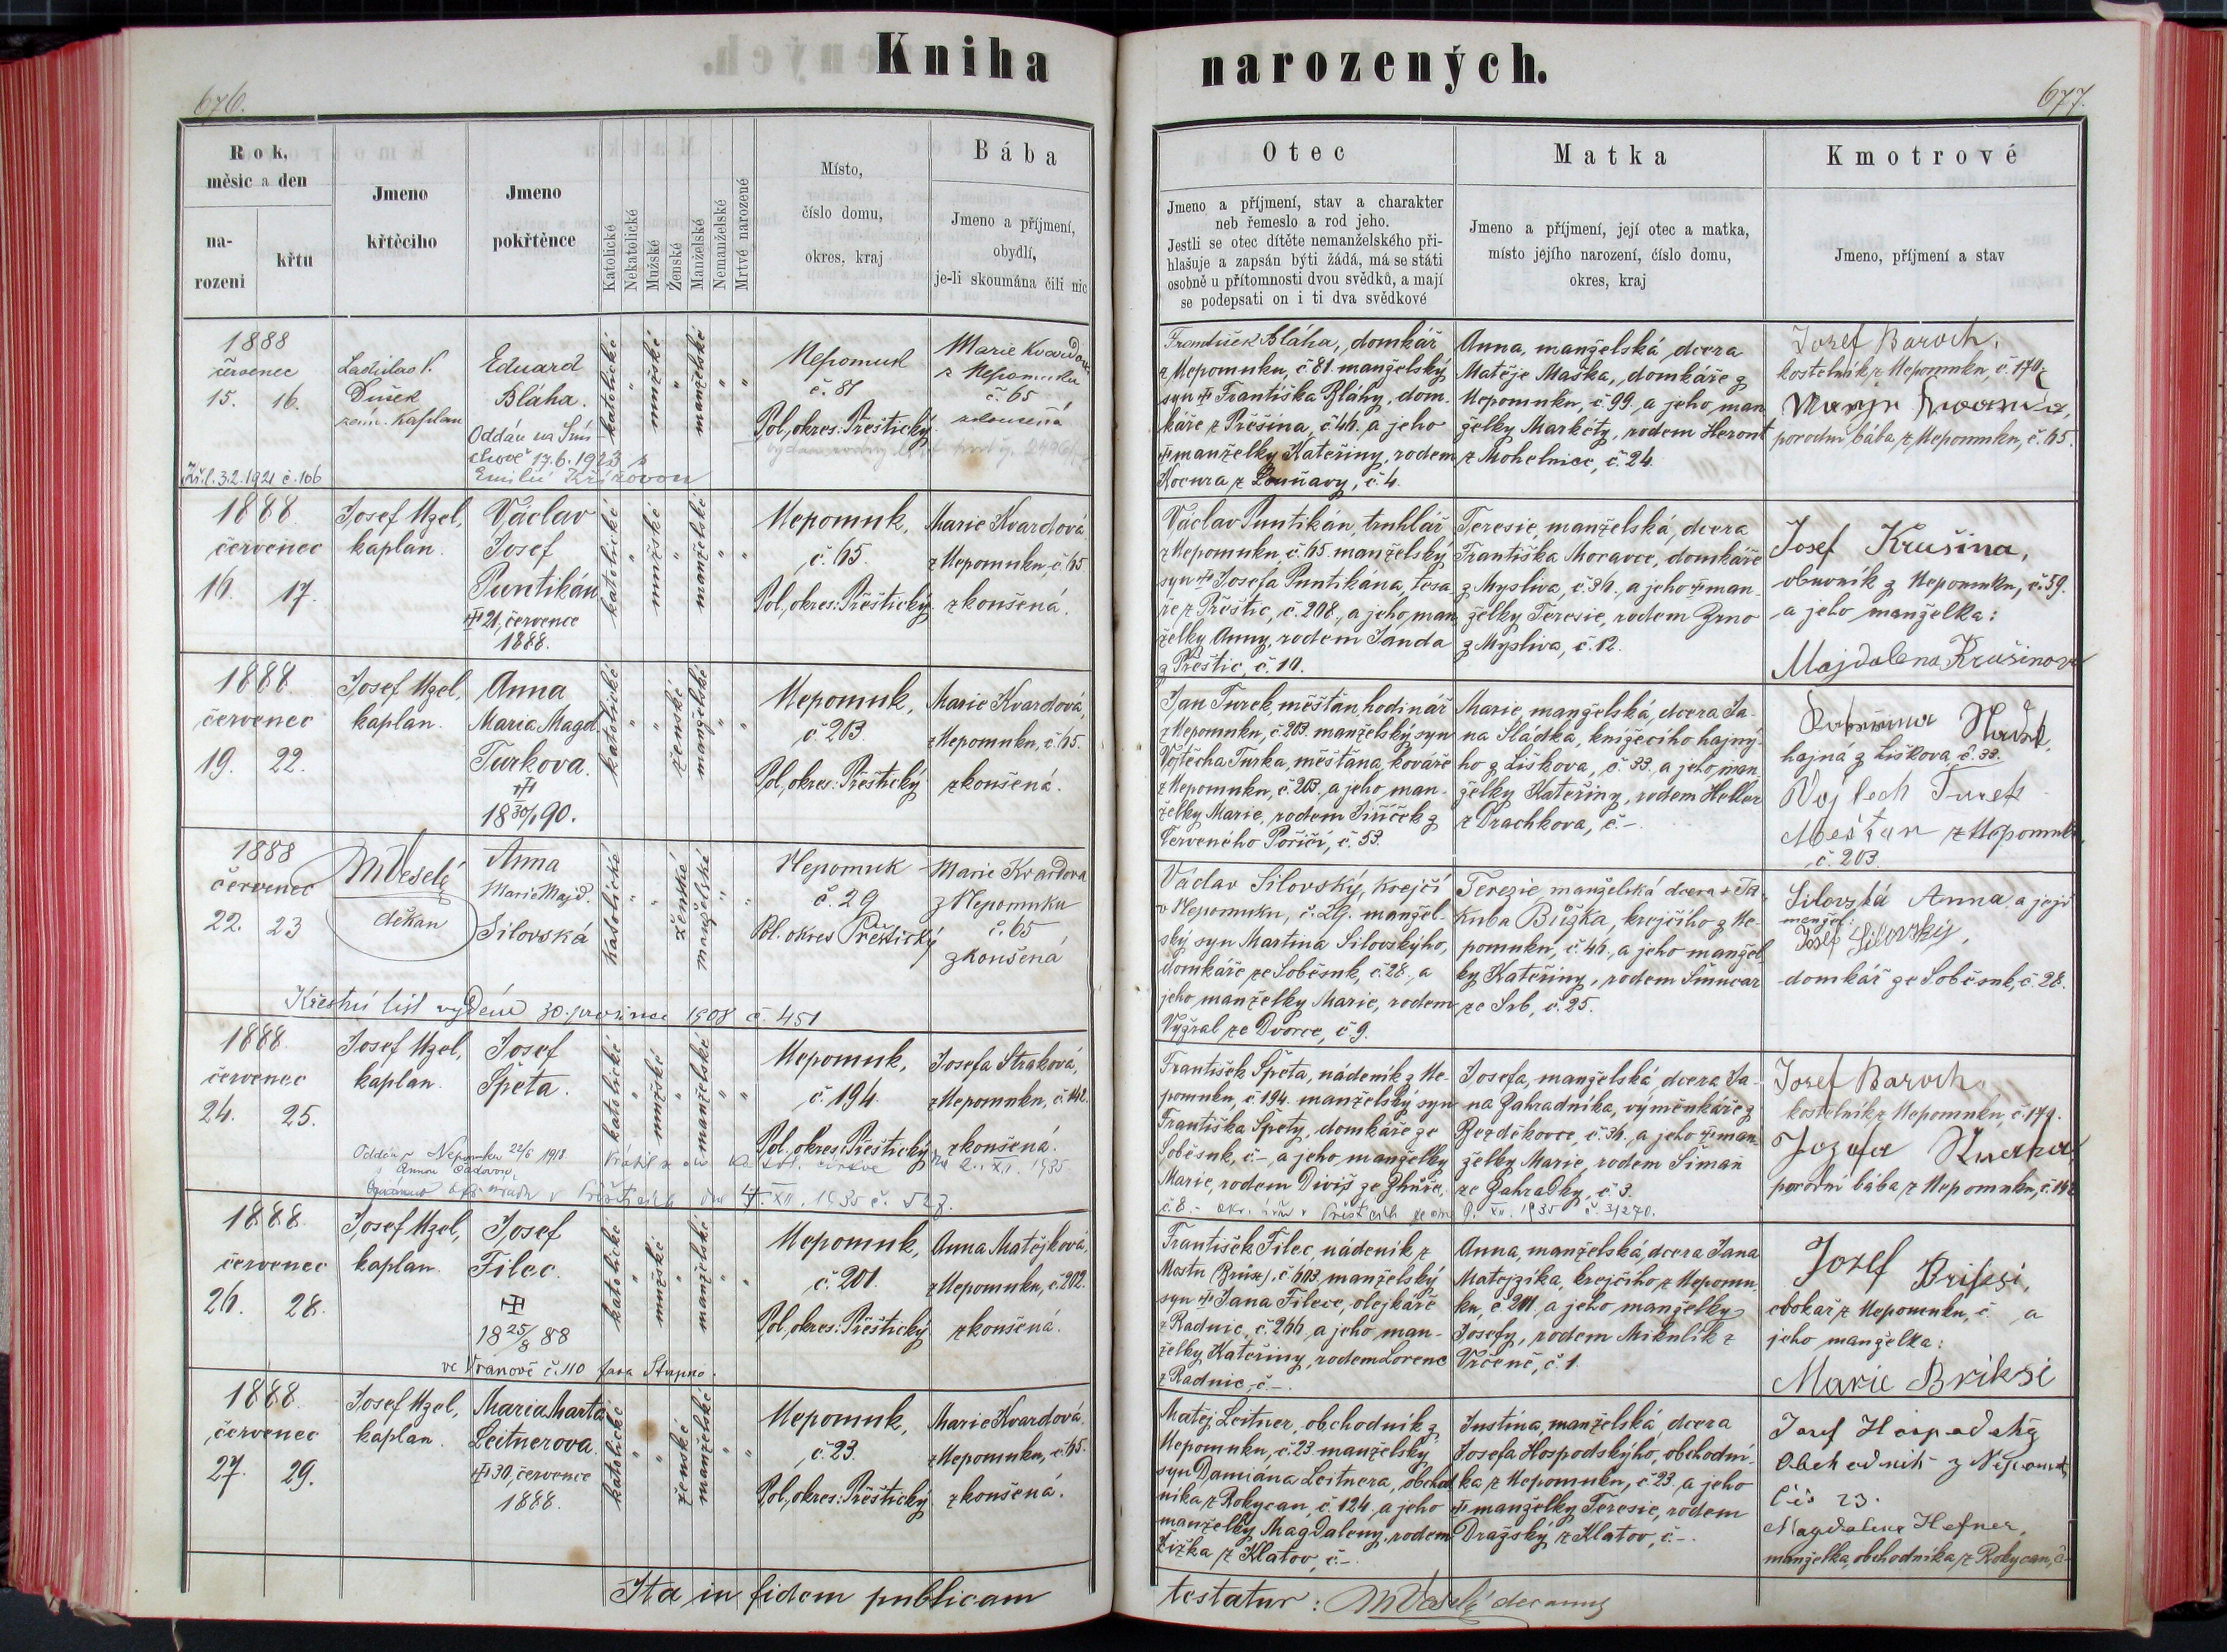 Kniha narozených.
676.
677.
Rok, měsíc a den
narození
křtu
Jmeno křtěcího
Jmeno pokřtěnce
Katolické
Nekatolické
Mužské
Ženské
Manželské
Nemanželské
Mrtvé narozené
Místo,
číslo domu,
okres, kraj
Bába
Jmeno a příjmení,
obydlí,
je-li skoumána čili nic
Otec
Jmeno a příjmení, stav a charakter
neb řemeslo a rod jeho.
Jestli se otec dítěte nemanželského při-
hlašuje a zapsán býti žádá, má se státi
osobně u přítomnosti dvou svědků, a mají
se podepsati on i ti dva svědkové
Matka
Jmeno a příjmení, její otec a matka,
místo jejího narození, číslo domu,
okres, kraj
Kmotrové
Jmeno, příjmení a stav
1888
červenec
15. 16.
Ladislav V.
Dušek
kaplan
Eduard
Bláha.
Oddán na Smí-
chově 17.6.1923 s
Emilií Křížovou
3.2.1921 č. 106
katolické
"
mužské
"
manželské
"
"
Nepomuk
č. 81
Pol. okres: Přeštický
Marie Kvardova
z Nepomuku
č. 65
zkoušená
František Bláha, domkář
z Nepomuku, č. 81. manželský
syn Františka Bláhy, dom-
káře z Přešína, č. 46. a jeho
manželky Kateřiny, rodem
Kocura z Louňavy, č. 4.
Anna, manželská dcera
Matěje Maška, domkáře z
Nepomuku, č. 99. a jeho man
želky Markéty, rodem Heront
z Mohelnice, č. 24.
Josef Baroch,
kostelník z Nepomuku, č. 170.
porodní bába z Nepomuku, č. 65.
1888.
červenec
16. 17.
Josef Uzel,
kaplan.
Václav
Josef
Puntikán
21. července
1888.
katolické
"
mužské
"
manželské
"
"
Nepomuk,
č. 65.
Pol. okres: Přeštický
Marie Kvardová
z Nepomuku, č. 65
zkoušená.
Václav Puntikán, truhlář
z Nepomuku, č. 65. manželský
syn Josefa Puntikána, tesa-
ře z Přeštic, č. 208. a jeho man
želky Anny, rodem Janda
z Přeštic, č. 10.
Teresie, manželská dcera
Františka Moravce, domkáře
z Mysliva, č. 36. a jeho man-
želky Teresie, rodem Zrno
z Mysliva, č. 12.
Josef Krušina,
obuvník z Nepomuku, č. 59.
a jeho manželka:
Majdalena Krušinova
1888
červenec
19. 22.
Josef Uzel,
kaplan.
Anna
Maria Magd.
Turkova.
18 30/1 90.
katolické
"
"
ženské
manželské
"
"
Nepomuk,
č. 203.
Pol. okres: Přeštický
Marie Kvardová,
z Nepomuku, č. 65.
zkoušená.
Jan Turek, měšťan, hodinář
z Nepomuku, č. 203. manželský syn
Vojtěcha Turka, měšťana, kováře
z Nepomuku, č. 203. a jeho man-
želky Marie, rodem Jiříček z
Červeného Poříčí, č. 53.
Marie, manželská dcera Ja-
na Sládka, knížecího hajné-
ho z Liškova, č. 33. a jeho man-
želky Kateřiny, rodem Heller
z Drachkova, č. -
hajná z Liškova, č. 33.
Vojtěch Turek
Mešťan z Nepomuku,
č. 203.
1888
červenec
22. 23
M Veselý
děkan
Anna
Marie Majd.
Silovská
Katolické
"
"
ženské
manželské
"
"
Nepomuk
č. 29
Pol. okres Přeštický
Marie Kvardova
z Nepomuku
č. 65
zkoušená
Křestní list vydán 30. prosince 1908 č. 451
Václav Silovský, krejčí
v Nepomuku, č. 29. manžel-
ský syn Martina Silovského,
domkáře ze Soběsuk, č. 28. a
jeho manželky Marie, rodem
Vyžral ze Dvorce, č. 9.
Terezie manželská dcera Ja-
kuba Bůžka, krejčího z Ne-
pomuku, č. 46. a jeho manžel-
ky Kateřiny, rodem
ze Srb, č. 25.
Silovská Anna a její
manžel:
Josef Silovský,
domkář ze Soběsuk, č. 28.
1888
červenec
24. 25.
Josef Uzel,
kaplan.
Josef
Špeta.
katolické
"
mužské
"
manželské
"
"
Nepomuk,
č. 194.
Pol. okres: Přeštický
Josefa Straková,
z Nepomuku, č. 142.
zkoušená.
Oddán v Nepomuku 22/6 1918
s Annou
František Špeta, nádeník z Ne-
pomuku, č. 194. manželský syn
Františka Špety, domkáře ze
Soběsuk, č. -, a jeho manželky
Marie, rodem Diviš ze Zhůře,
č. 8.
Josefa, manželská dcera Ja-
na Zahradníka, výměnkáře z
Bezděkovce, č. 36. a jeho man-
želky Marie, rodem Šiman
ze Zahrádky, č. 3.
Josef Baroch
kostelník z Nepomuku, č. 179.
Jozefa
porodní bába z Nepomuku, č. 142
1888
červenec
26. 28.
Josef Uzel,
kaplan.
Josef
Filec.
18 25/8 88
ve Vranově č. 110 fara Stupno.
katolické
"
mužské
"
manželské
"
"
Nepomuk,
č. 201.
Pol. okres: Přeštický
Anna Matějková,
z Nepomuku, č. 202.
zkoušená.
František Filec, nádeník z
Mostu (Brüx), č. 603, manželský
syn Jana Filece, olejkáře
z Radnic, č. 266, a jeho man-
želky Kateřiny, rodem Lorenc
z Radnic, č -.
Anna, manželská dcera Jana
Matejzíka, krejčího z Nepomu-
ku, č. 201. a jeho manželky
Josefy, rodem Mikulík z
Vrčeně, č. 1.
Jozef Briksi,
cvokař z Nepomuku, č. a
jeho manželka:
Marie Briksi
1888.
červenec
27. 29.
Josef Uzel,
kaplan.
Maria Marta
Leitnerova.
30. července
1888.
katolické
"
"
ženské
manželské
"
"
Nepomuk,
č. 23.
Pol. okres: Přeštický
Marie Kvardová.
z Nepomuku, č. 65.
zkoušená.
Matěj Leitner, obchodník z
Nepomuku, č. 23. manželský
syn Damiána Leitnera, obchod
níka z Rokycan, č. 124, a jeho
manželky Magdaleny, rodem
Žižka z Klatov, č -.
Justina, manželská dcera
Josefa Hospodského, obchodní-
ka z Nepomuku, č. 23. a jeho
manželky Teresie, rodem
Dražský z Klatov, č. -.
Josef Hospodský
Obchodník z Nepomuk
Čís 23.
Magdalena Hefner,
manželka obchodníka z Rokycan, č -
Ita in fidem publicam
testatur: M Veselý decanus